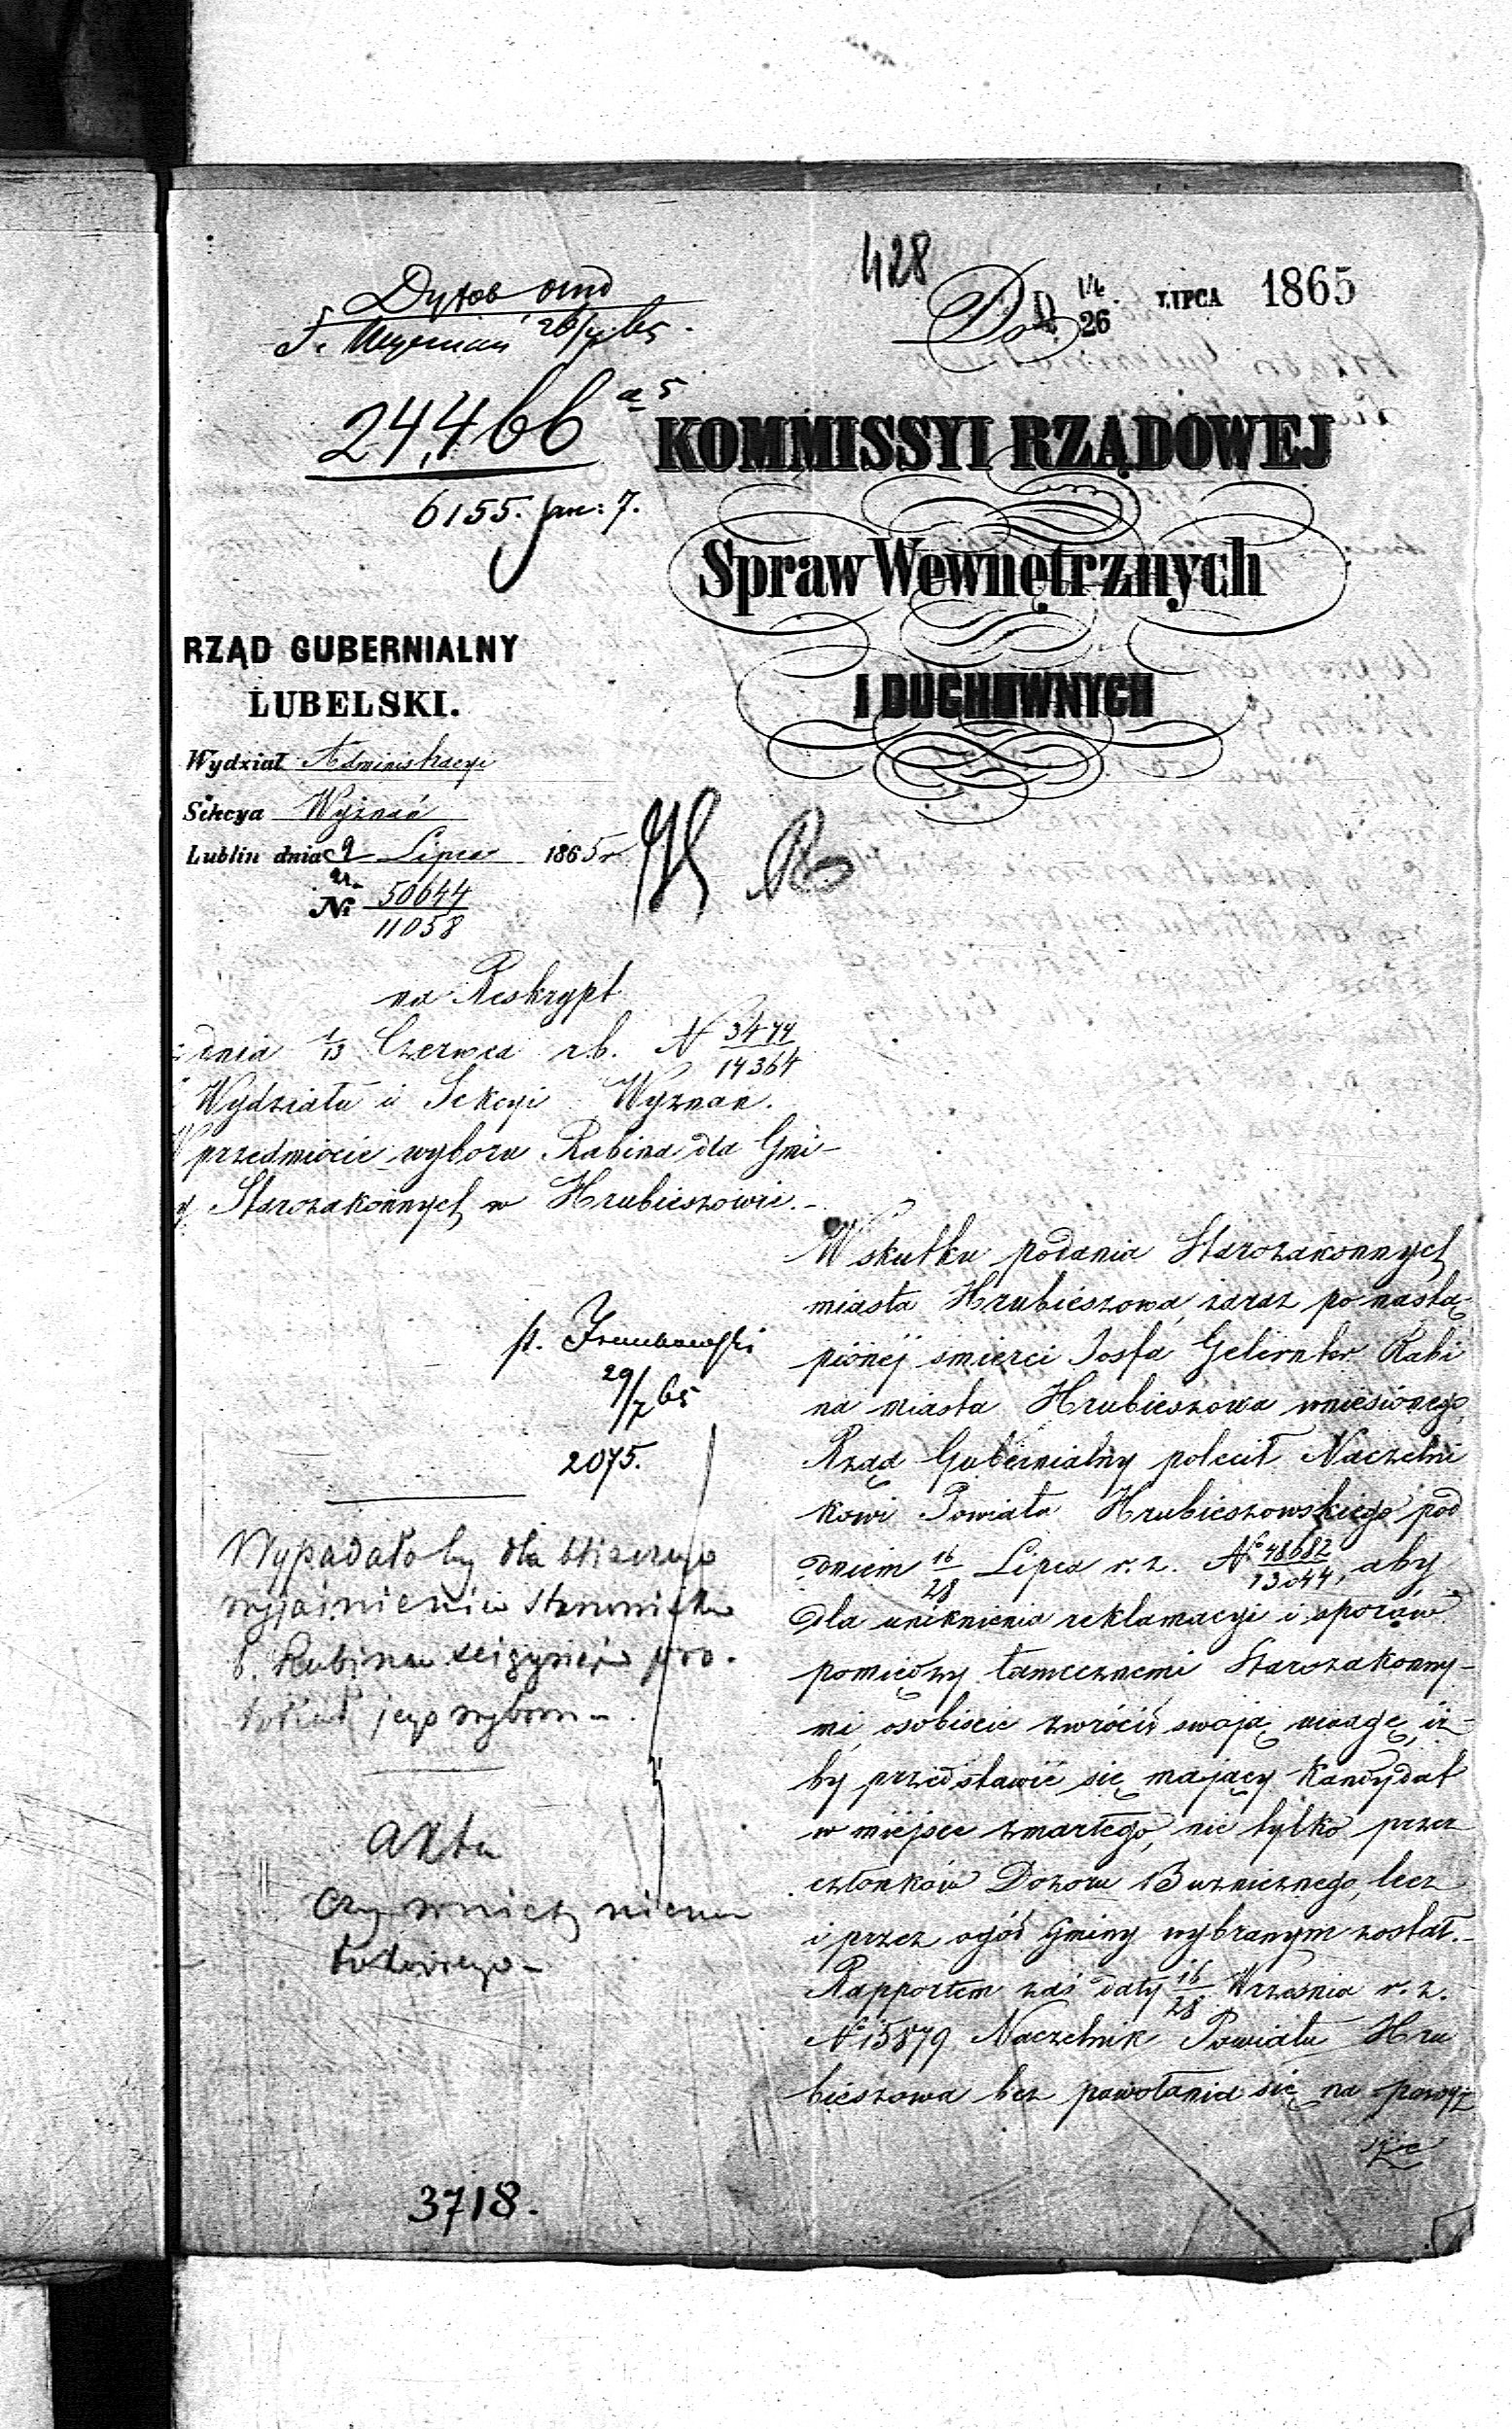 428
Do
D 14/26 LIPCA 1865
26/7 65.
24,466 a 5
6155. Jan: 7.
KOMMISSYI RZĄDOWEJ
Spraw Wewnętrznych
I DUCHOWNYCH
RZĄD GUBERNIALNY
LUBELSKI.
Wydział Administracyi
Sekcya Wyznań
Lublin dnia 9/21 Lipca 1865 r
№ 50644/11058
na Reskrypt
z dnia 1/13 Czerwca r.b. N 3474/14364
Wydziału i Sekcyi Wyznań.
W przedmiocie wyboru Rabina dla Gmi-
y Starozakonnych w Hrubieszowie.-
29/7 65
2075.
Wypadałoby dla bliższego
wyjaśnienia stanowiska
b. Rabina ściągnąć pro-
tokuł jego wyboru -
Akta
czy w niczem
3718.
W skutku podania Starozakonnych
miasta Hrubieszowa, zaraz po nastą-
pionéj smierci Josfa Gelernter Rabi
na miasta Hrubieszowa wniesionego,
Rząd Gubernialny polecił Naczelni
kowi Powiatu Hrubieszowskiego pod
dniem 16/28 Lipca r.z. № 48682/13044, aby
dla uniknienia reklamacyi i sporów
pomiędzy tamecznemi Starozakonny-
mi, osobiscie zwrócił swoją uwagę, iż-
by przedstawić się mający Kandydat
w miéjsce zmarłego, nie tylko przez
członków Dozoru Bużnicznego, lecz
i przez ogół Gminy wybranym został.-
Rapportem zaś daty 16/28 Września r.z.
№ 15879 Naczelnik Powiatu Hru
bieszowa bez powołania się na powyż
sze